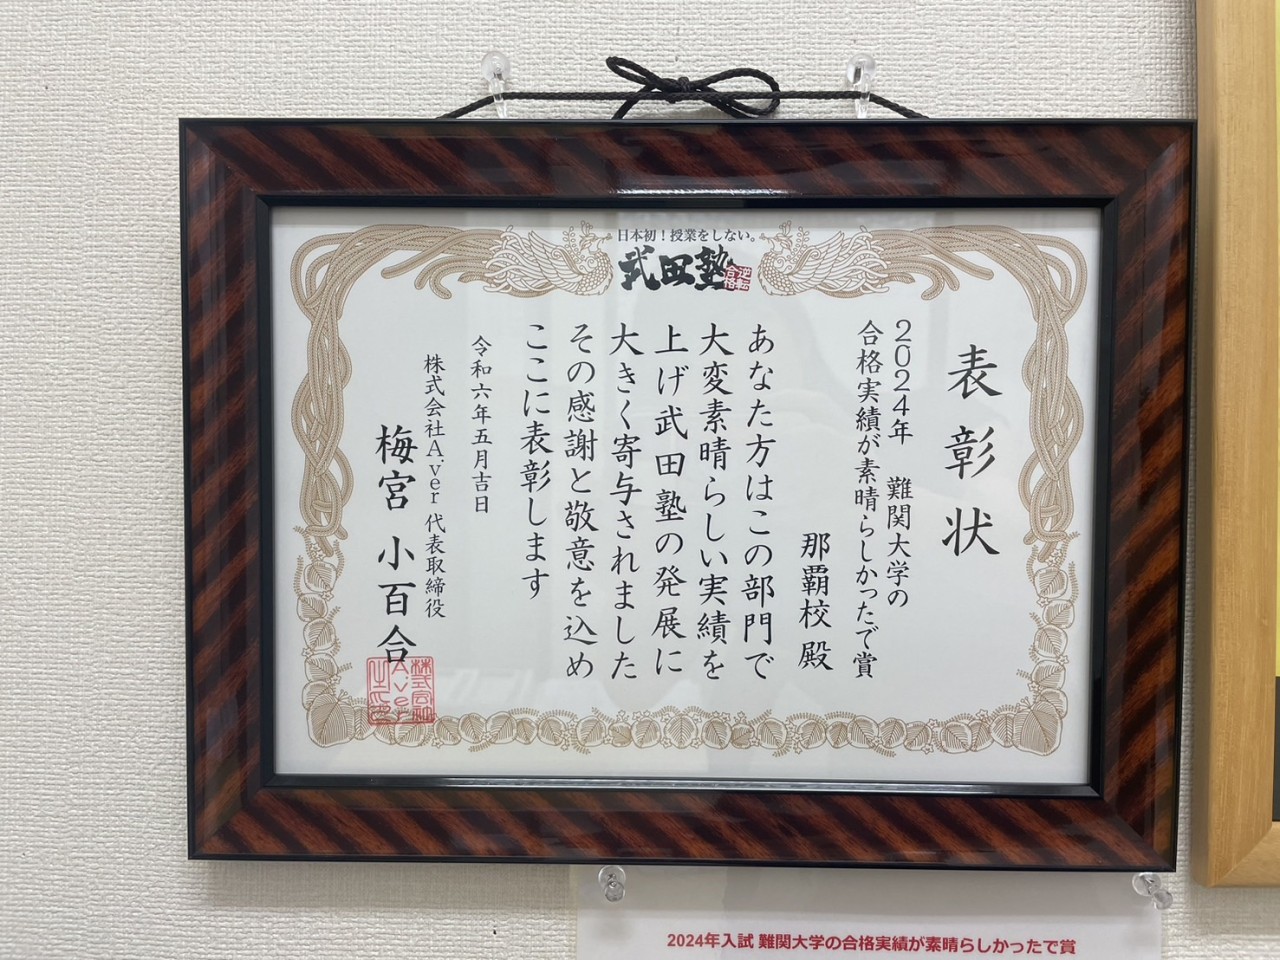 日本初！授業をしない。
武田塾
逆転
合格
表彰状
2024年 難関大学の
合格実績が素晴らしかったで賞
那覇校 殿
あなた方はこの部門で
大変素晴らしい実績を
上げ武田塾の発展に
大きく寄与されました
その感謝と敬意を込め
ここに表彰します
令和六年五月吉日
株式会社A.ver 代表取締役
梅宮 小百合
株式会社
A.ver
2024年入試 難関大学の合格実績が素晴らしかったで賞